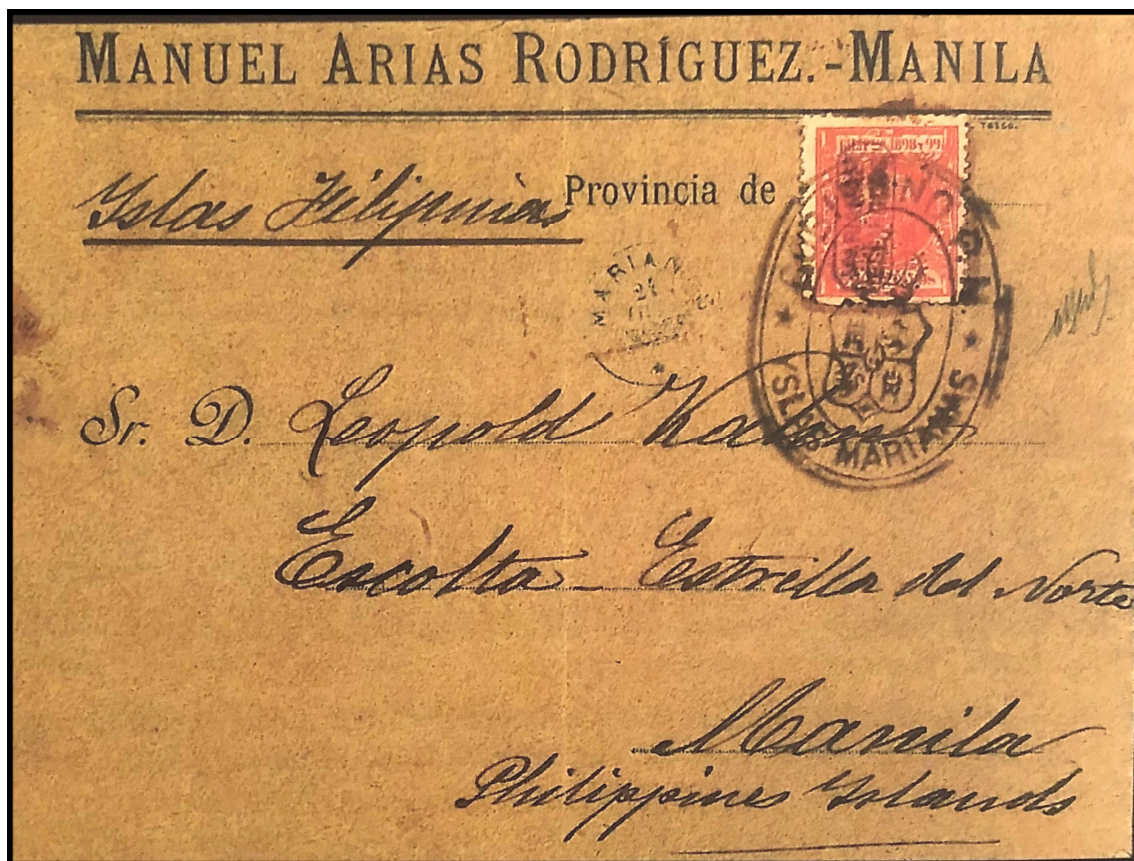 MANUEL ARIAS RODRÍGUEZ.-MANILA
TASSO.
1898 Y 99
Islas Filipinas Provincia de
MARIAN
21
YSLAS MARIANAS
Sr. D. Leopold Kahn
Escolta - Estrella del Norte
Manila
Philippines Islands